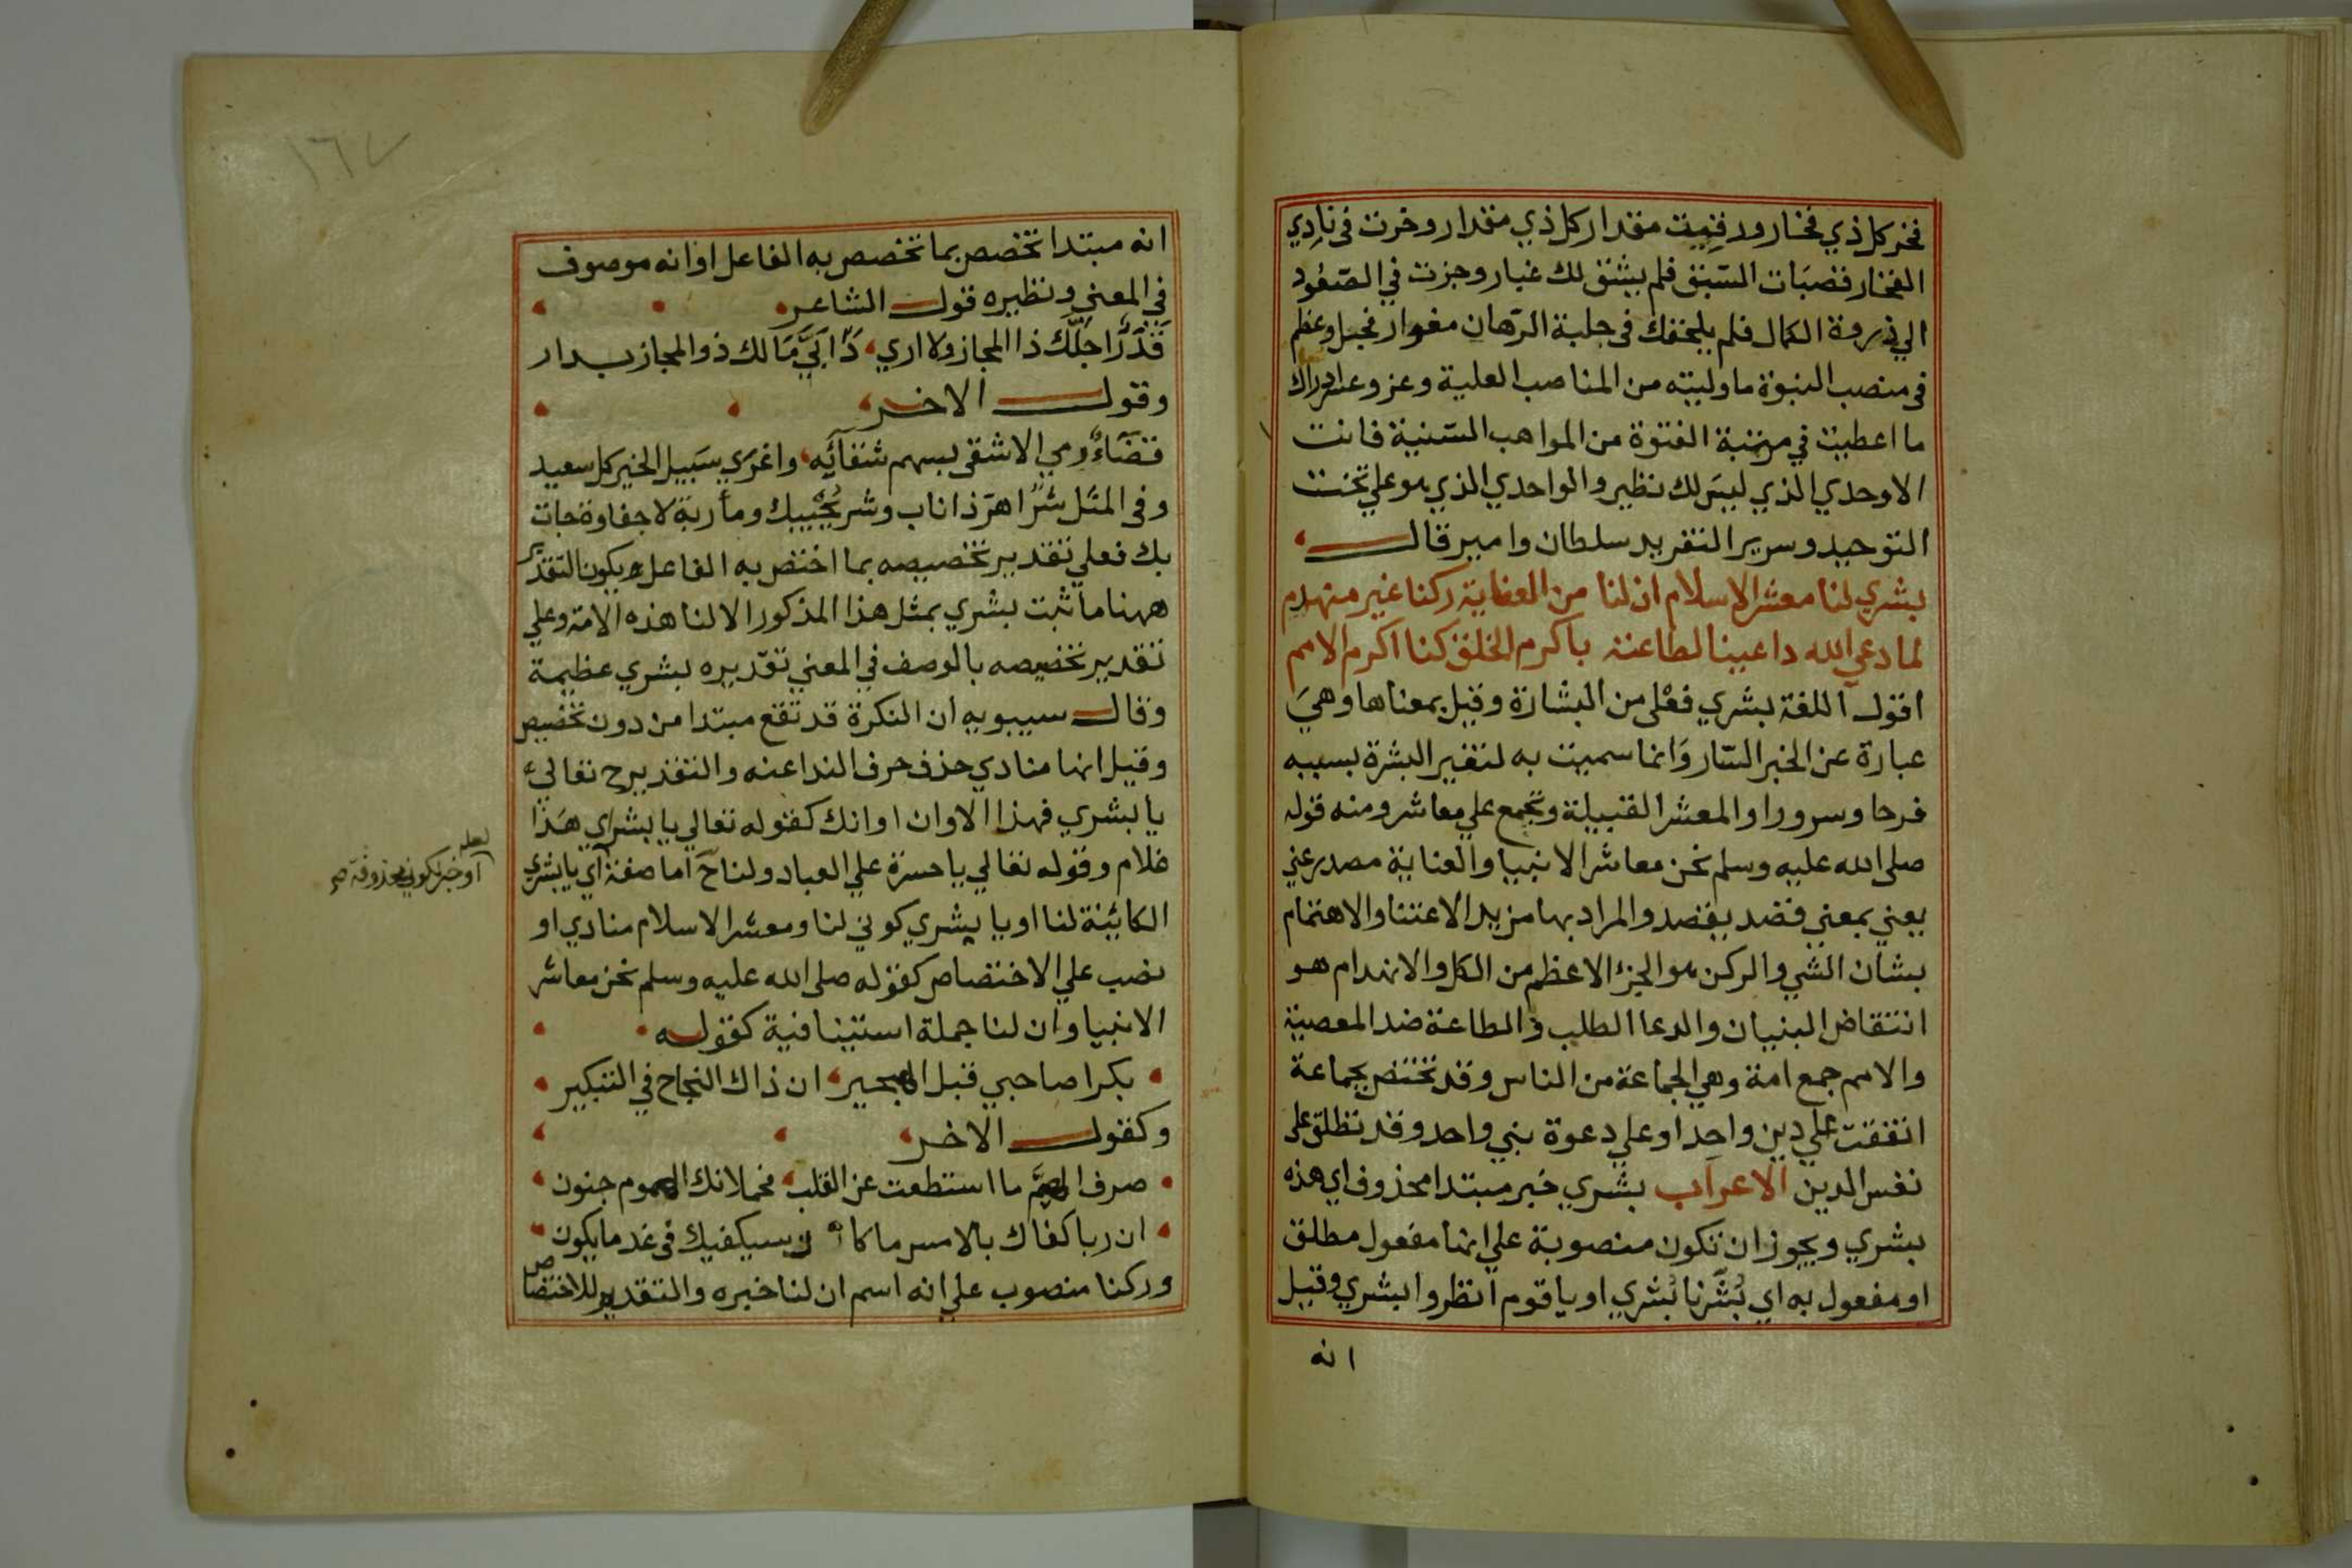 فخر كل ذي فخار ورقيت مقدار كل ذي مقدار وخرت في نادي
الفخار قصبات السبق فلم يشق لك غبار وجزت في الصعود
الي ذروة الكمال فلم يلحقك في حلبة الرهان مغوار فجل وعظم
في منصب النبوة ما وليته من المناصب العلية وعز وعلا ادراك
ما اعطيت في مرتبة الفتوة من المواهب السنية فانت
الاوحدي الذي ليس لك نظير والواحدي الذي هو علي تخت
التوحيد وسرير التفريد سلطان وامير قال
بشري لنا معشر الاسلام ان لنا من العناية ركنا غير منهدم
لما دعي الله داعينا لطاعته باكرم الخلق كنا اكرم الامم
اقول اللغة بشري فعلى من البشارة وقيل بمعناها وهي
عبارة عن الخبر السار وانما سميت به لتغير البشرة بسببه
فرحا وسرورا والمعشر القبيلة وتجمع علي معاشر ومنه قوله
صلى الله عليه وسلم نحن معاشر الانبيا والعناية مصدر عني
يعني بمعني قصد يقصد والمراد بها مزيد الاعتنا والاهتمام
بشان الشي والركن هو الجزء الاعظم من الكل والانهدام هو
انتقاض البنيان والدعا الطلب والطاعة ضد المعصية
والامم جمع امة وهي الجماعة من الناس وقد تختص بجماعة
اتفقت علي دين واحد او علي دعوة نبي واحد وقد تطلق على
نفس الدين الاعراب بشري خبر مبتدا محذوف اي هذه
بشري ويجوز ان تكون منصوبة علي انها مفعول مطلق
او مفعول به اي بُشّرنا بُشري او يا قوم انظروا بشري وقيل
انه
١٦٧
انه مبتدا تخصص بما تخصص به الفاعل او انه موصوف
في المعني ونظيره قول الشاعر
قَدَرٌ احَلّك ذا المجاز ولا اري دَابيّ مَالك ذو المجاز بدار
وقول الاخر
قضاءٌ رمي الاشقى بسهم شقائه واغري سبيل الخير كل سعيد
وفي المثل شرٌ اهرّ ذا ناب وشر يُجيبك ومأربة لا حفاوة جات
بك فعلي تقدير تخصيصه بما اختص به الفاعل ويكون التقدير
ههنا ما ثبت بشري بمثل هذا المذكور الا لنا هذه الامة وعلي
تقدير تخصيصه بالوصف في المعني تقديره بشري عظيمة
وقال سيبويه ان النكرة قد تقع مبتدا من دون تخصيص
وقيل انها منادي حذف حرف الندا عنه والتقدير ح تعالي
يا بشري فهذا الاوان اوانك كقوله تعالي يا بشراي هذا
غلام وقوله تعالي يا حسرة علي العباد ولنا ح اما صفة اي يا بشري
الكائنة لنا او يا بشري كوني لنا ومعشر الاسلام منادي او
نصب علي الاختصاص كقوله صلى الله عليه وسلم نحن معاشر
الانبيا وان لنا جملة استينافية كقوله
بكرا صاحبي قبل الهجير ان ذاك النجاح في التبكير
وكقول الاخر
صرف الهم ما استطعت عن القلب فحملانك الهموم جنون
ان ربا كفاك بالامس ما كا ن سيكفيك في غد ما يكون
وركنا منصوب علي انه اسم ان لنا خبره والتقدير للاختصاص
لعله
او خبر لكوني محذوفة صح